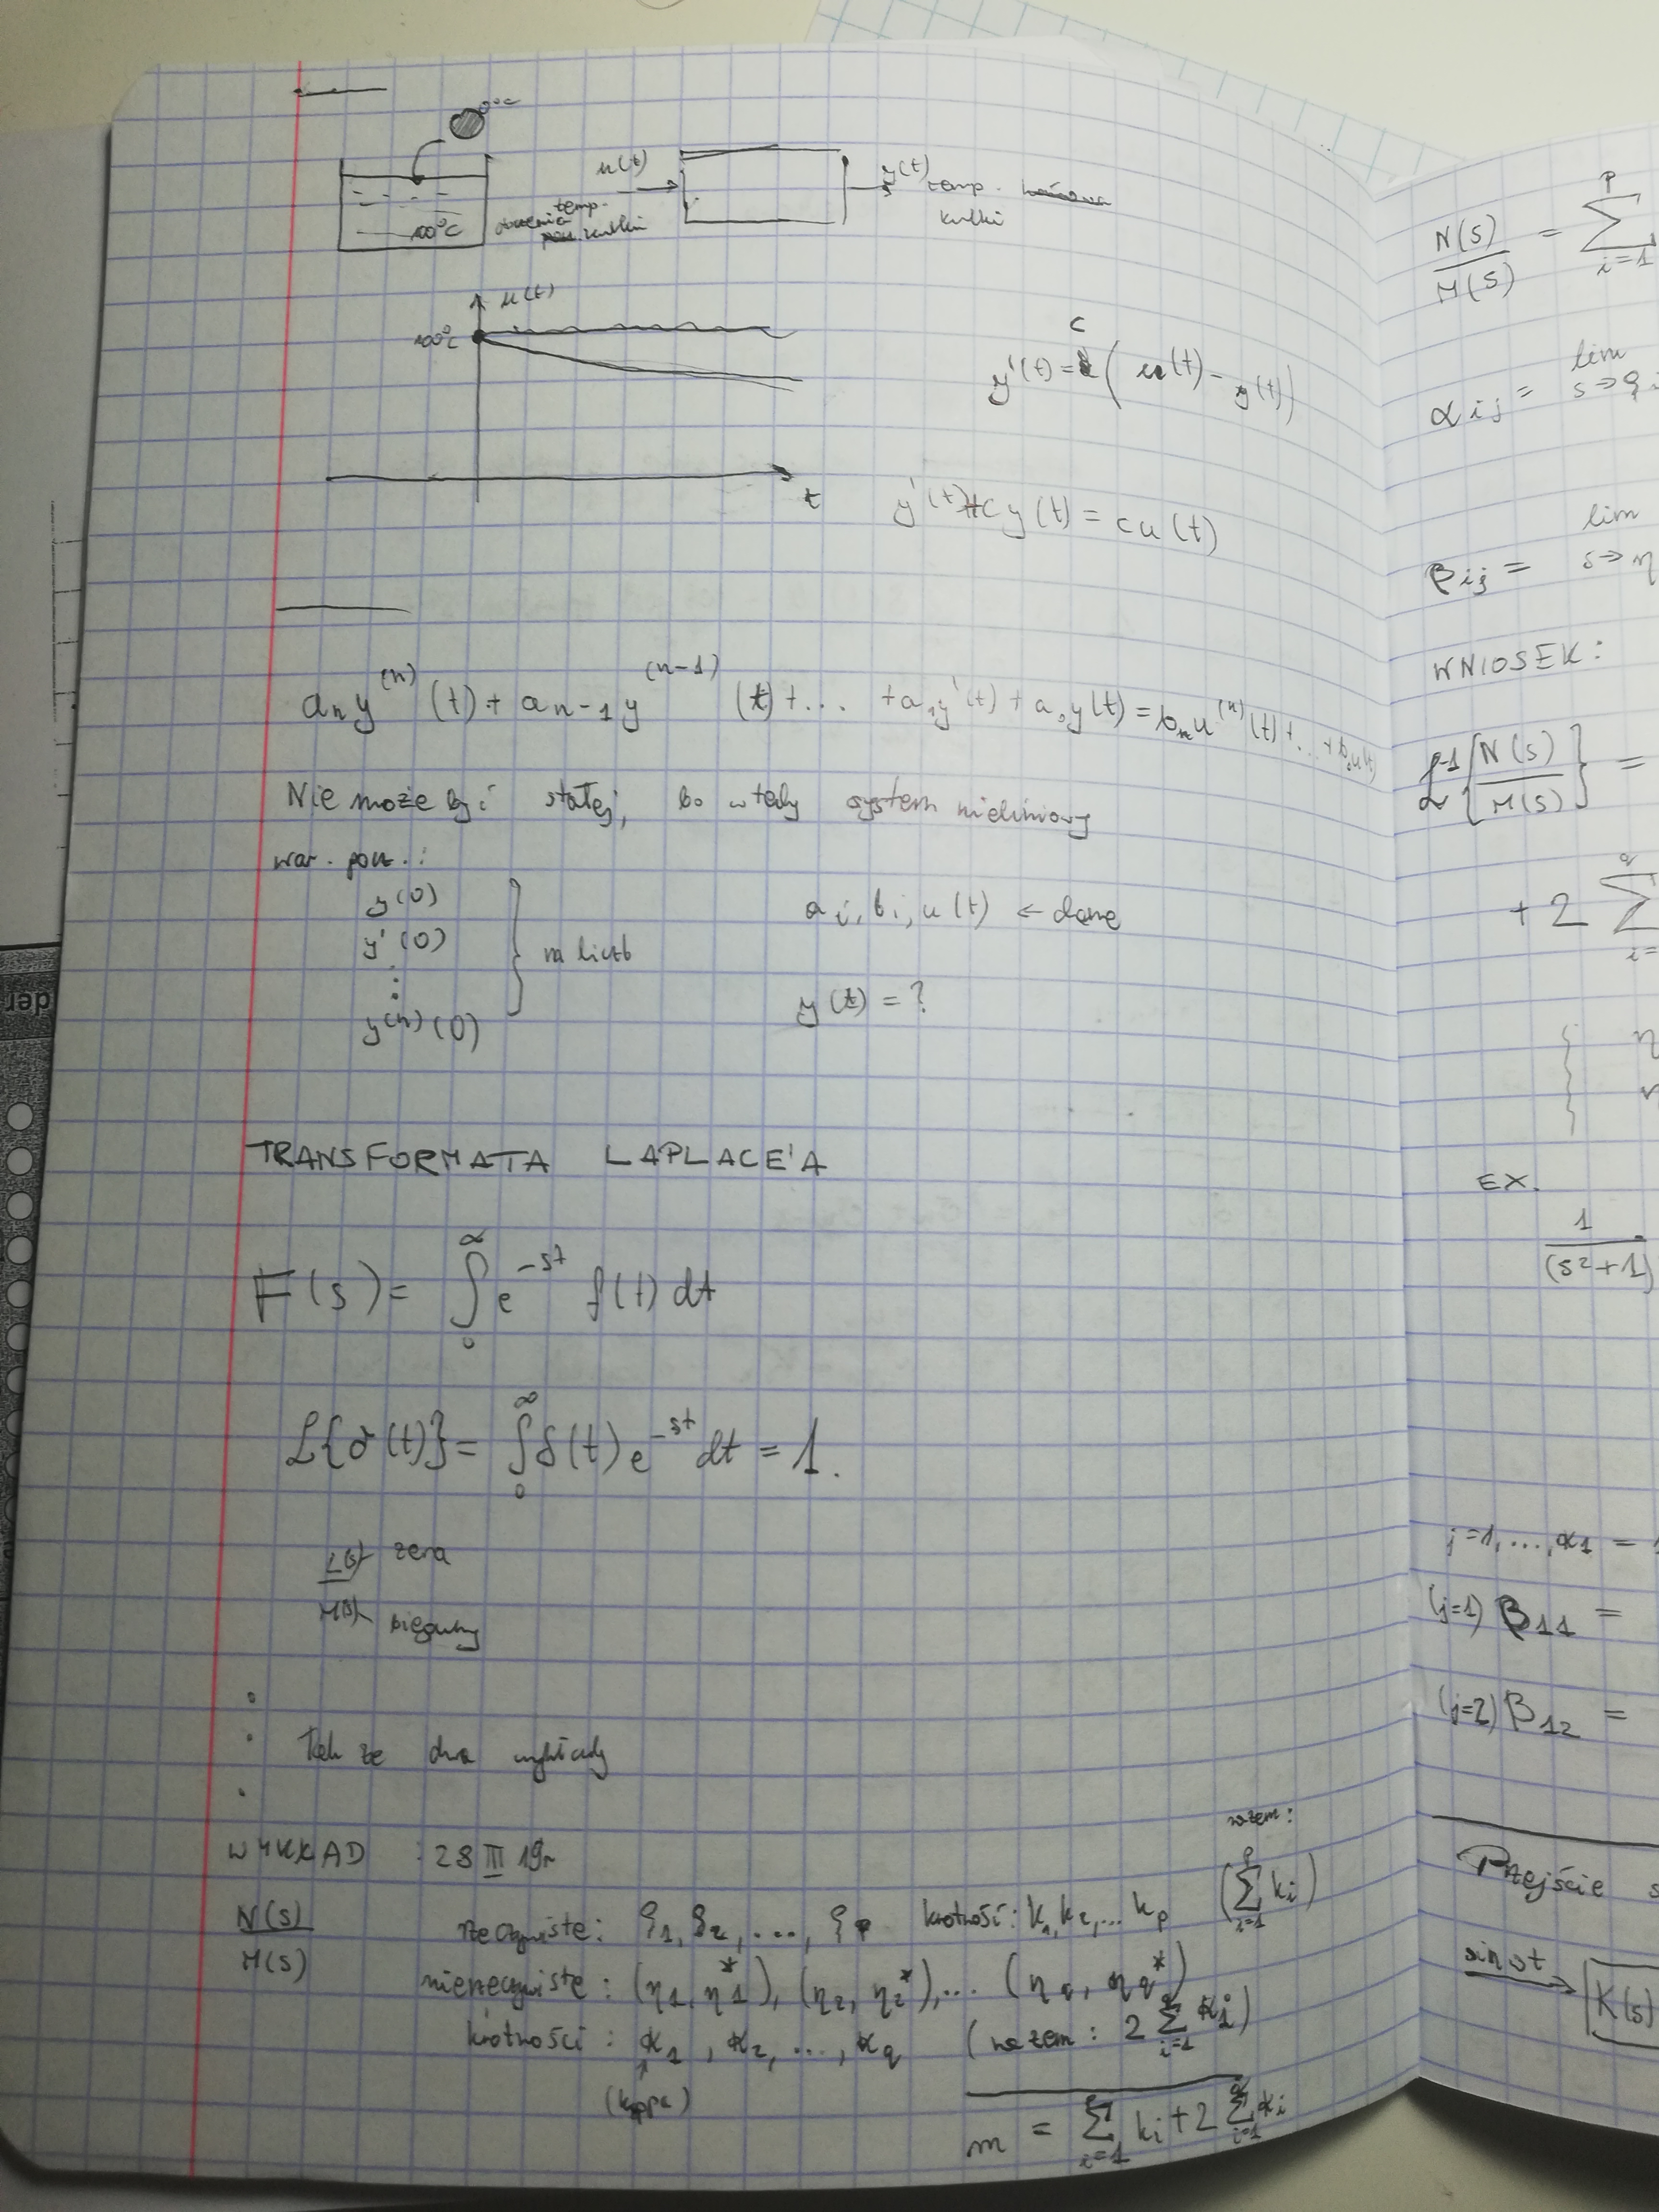 0°C
u(t)
y(t)
temp.
kulki
100°C
temp.
otoczenia
kulki
u(t)
100°C
t
y'(t) = C ( u(t) - y(t) )
y'(t) + c y(t) = c u(t)
a_n y^(n) (t) + a_{n-1} y^(n-1) (t) + ... + a_1 y'(t) + a_0 y(t) = b_m u^(n) (t) + .. + b_0 u(t)
Nie może być stałej, bo wtedy system nieliniowy
war. pocz.:
y(0)
y'(0)
⋮
y^(n) (0)
} na liczb
a_i, b_i, u(t) ← dane
y(t) = ?
TRANSFORMATA LAPLACE'A
F(s) = ∫_0^∞ e^{-st} f(t) dt
ℒ{δ(t)} = ∫_0^∞ δ(t) e^{-st} dt = 1.
L(s) zera
M(s) bieguny
Tak ze dwa wykłady
WYKŁAD : 28 III 19r
N(s)
M(s)
rzeczywiste: ϱ_1, ϱ_2, ..., ϱ_p krotności: k_1, k_2, ... k_p
razem:
( Σ_{i=1}^p k_i )
nierzeczywiste: (η_1, η_1^*), (η_2, η_2^*), ... (η_q, η_q^*)
krotności: ϰ_1, ϰ_2, ..., ϰ_q ( razem: 2 Σ_{i=1} ϰ_i )
(kappa)
m = Σ_{i=1} k_i + 2 Σ_{i=1} ϰ_i
N(s)/M(s) = Σ_{i=1}^p
α_ij = lim s→ϱ_i
β_ij = lim s→η
WNIOSEK:
ℒ^-1 { N(s)/M(s) } =
+ 2 Σ_{i=}^q
EX.
1
(s²+1)
j=1, ..., ϰ_1 =
(j=1) β_11 =
(j=2) β_12 =
Przejście s
sin ωt
K(s)
der